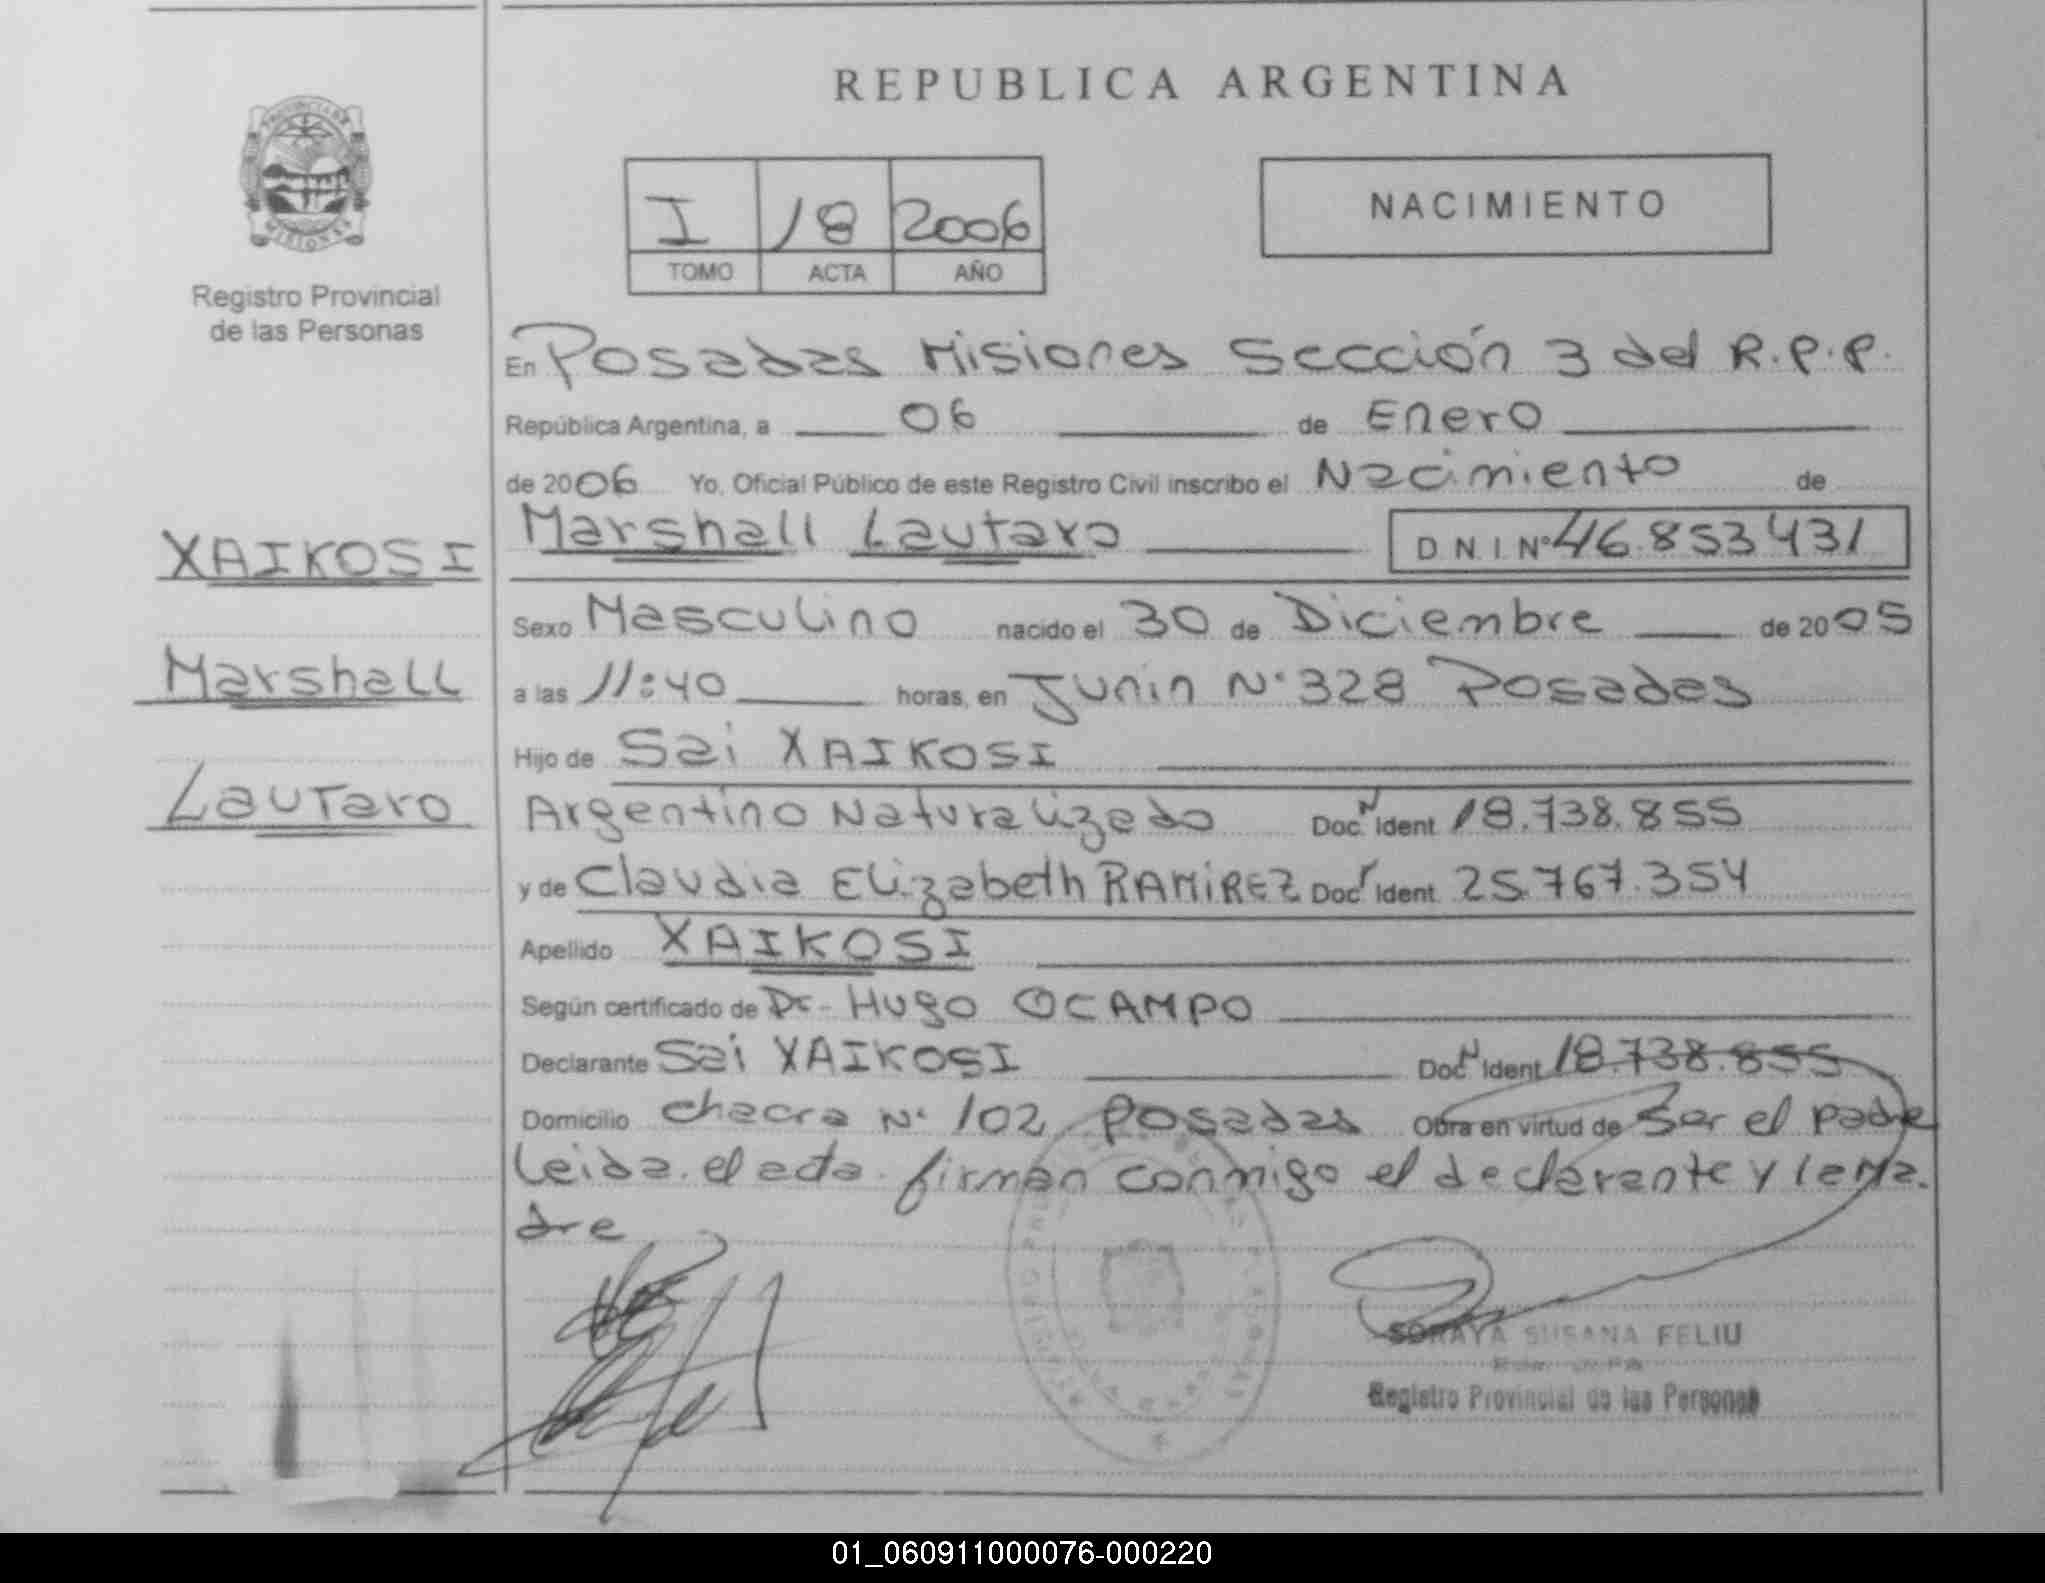 REPUBLICA ARGENTINA
PROVINCIA DE MISIONES
Registro Provincial
de las Personas
I 18 2006
TOMO ACTA AÑO
NACIMIENTO
En Posadas Misiones Sección 3 del R.P.P.
República Argentina, a 06 de Enero
de 2006 Yo, Oficial Público de este Registro Civil inscribo el Nacimiento de
XAIKOSI
Marshall Lautaro D N I Nº 46.853431
Sexo Masculino nacido el 30 de Diciembre de 2005
Marshall
a las 11:40 horas, en Junin Nº 328 Posadas
Hijo de Sai XAIKOSI
Lautaro
Argentino Naturalizado Doc N Ident 18.738.855
y de Claudia Elizabeth RAMIREZ Doc Ident 25.767.354
Apellido XAIKOSI
Según certificado de Dr- Hugo OCAMPO
Declarante Sai XAIKOSI Doc N Ident 18.738.855
Domicilio chacra Nº 102 Posadas Obra en virtud de Ser el padre
Leida el acta firman conmigo el declarante y la Ma
dre
SORAYA SUSANA FELIU
Registro Provincial de las Personas
01_060911000076-000220